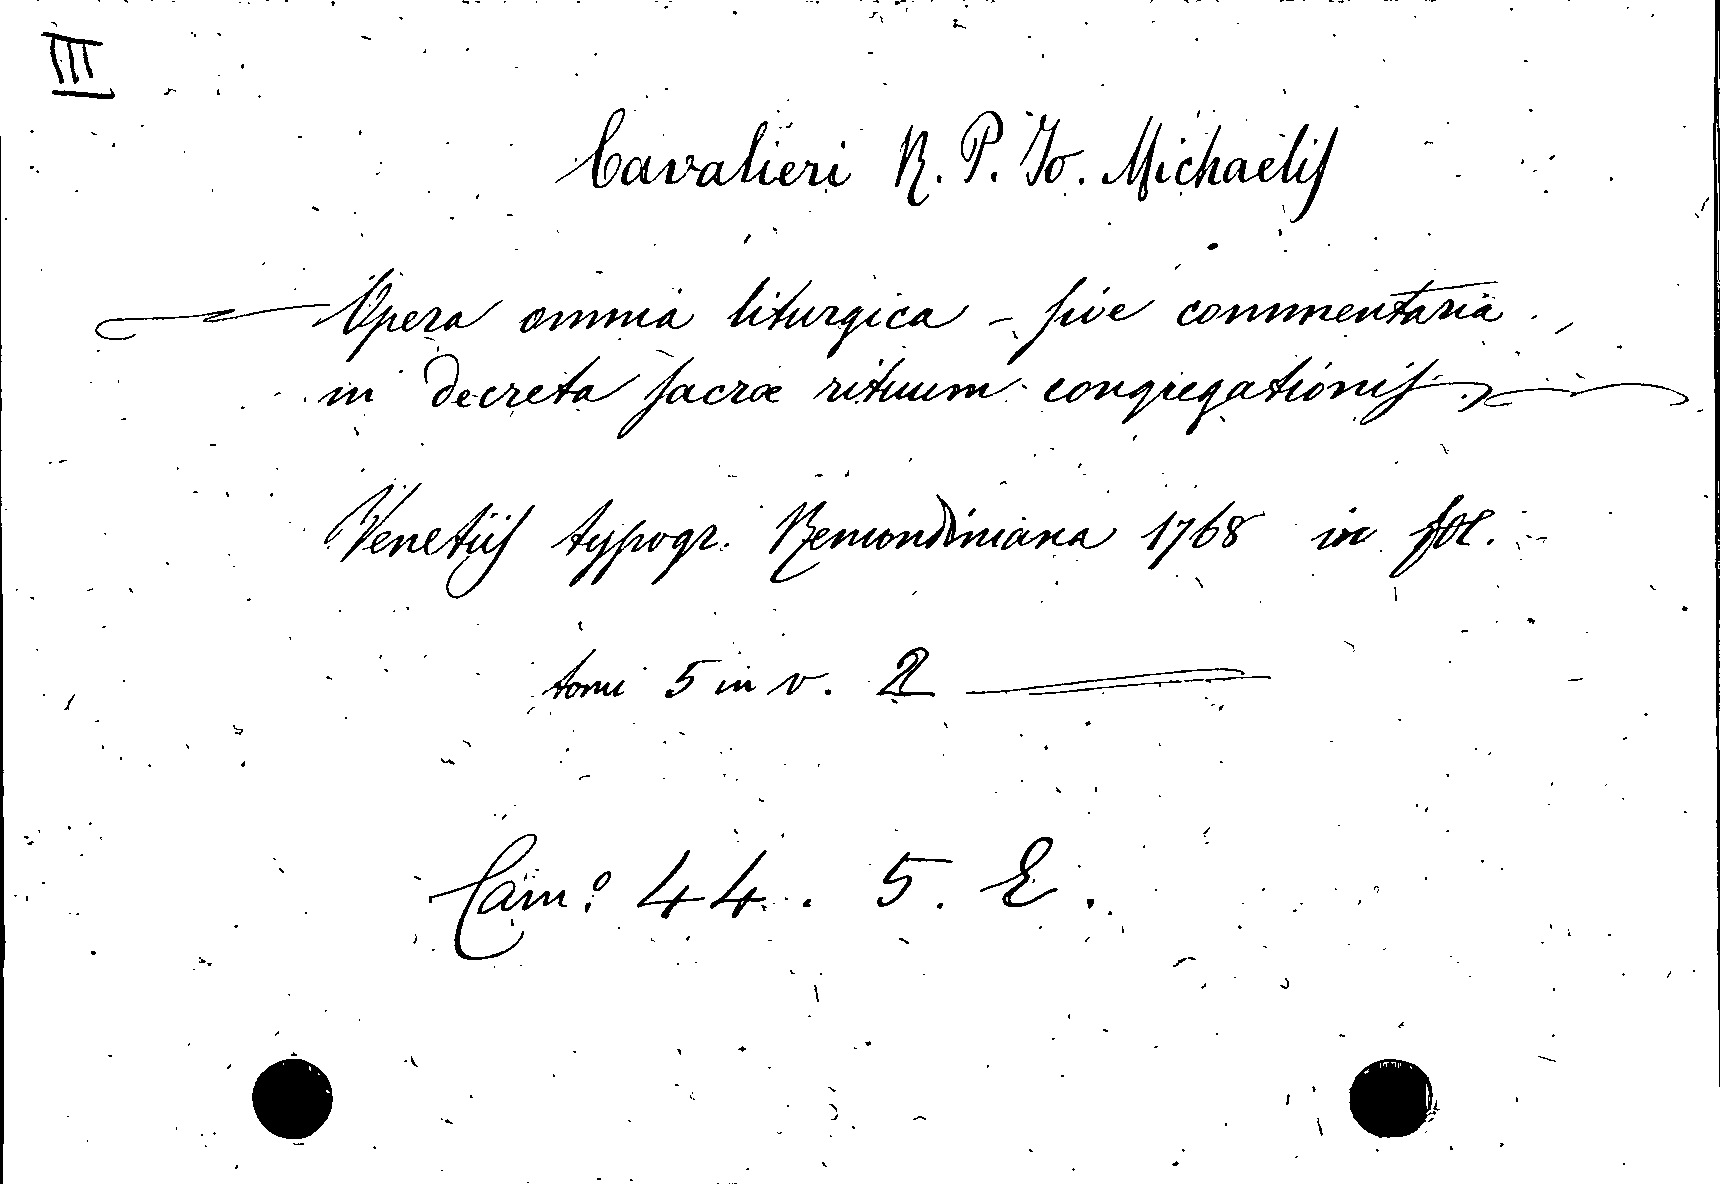 III
Cavalieri R. P. Jo. Michaelis
Opera omnia liturgica - sive commentaria
in decreta sacræ rituum congregationis
Venetiis typogr. Remondiniana 1768 in fol.
tomi 5 in v. 2
Cam.º 44. 5. E.